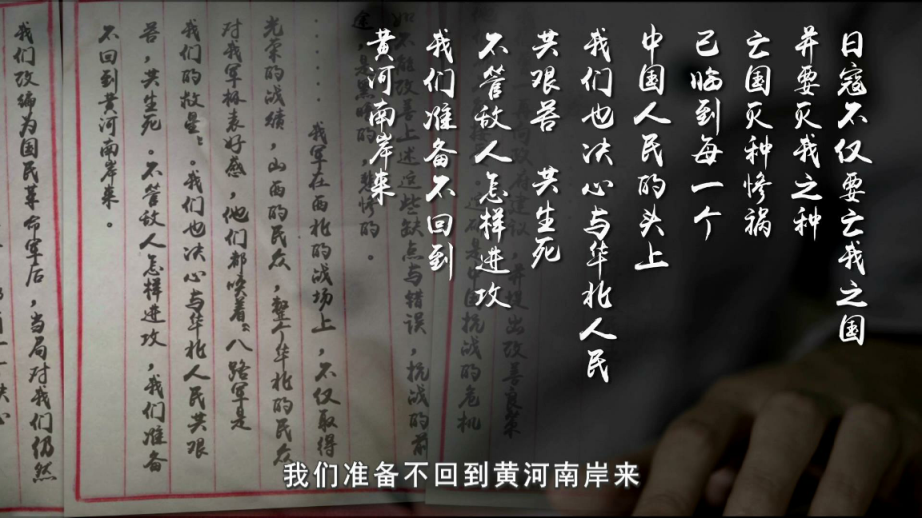 日寇不仅要亡我之国
并要灭我之种
亡国灭种惨祸
已临到每一个
中国人民的头上
我们也决心与华北人民
共艰苦 共生死
不管敌人怎样进攻
我们准备不回到
黄河南岸来
提出改善良策
抗战的危机
如不能改善上述这些缺点与错误，抗战的前
途，是黑暗的，悲惨的。
……我军在西北的战场上，不仅取得
光荣的战绩，山西的民众，整个华北的民众
对我军极表好感，他们都唤着“八路军是
我们的救星”。我们也决心与华北人民共艰
苦，共生死。不管敌人怎样进攻，我们准备
不回到黄河南岸来。
我们改编为国民革命军后，当局对我们仍然
我们准备不回到黄河南岸来